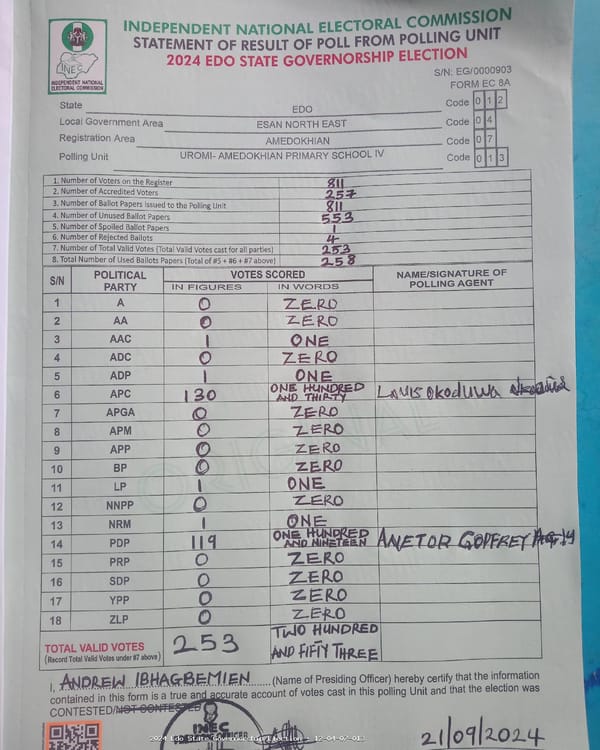 INDEPENDENT NATIONAL ELECTORAL COMMISSION
STATEMENT OF RESULT OF POLL FROM POLLING UNIT
2024 EDO STATE GOVERNORSHIP ELECTION
INEC
INDEPENDENT NATIONAL
ELECTORAL COMMISSION
S/N: EG/0000903
FORM EC 8A
State EDO Code 0 1 2
Local Government Area ESAN NORTH EAST Code 0 4
Registration Area AMEDOKHIAN Code 0 7
Polling Unit UROMI- AMEDOKHIAN PRIMARY SCHOOL IV Code 0 1 3
1. Number of Voters on the Register 811
2. Number of Accredited Voters 257
3. Number of Ballot Papers Issued to the Polling Unit 811
4. Number of Unused Ballot Papers 553
5. Number of Spoiled Ballot Papers 1
6. Number of Rejected Ballots 4
7. Number of Total Valid Votes (Total Valid Votes cast for all parties) 253
8. Total Number of Used Ballots Papers (Total of #5 + #6 + #7 above) 258
S/N POLITICAL PARTY VOTES SCORED NAME/SIGNATURE OF POLLING AGENT
IN FIGURES IN WORDS
1 A 0 ZERO
2 AA 0 ZERO
3 AAC 1 ONE
4 ADC 0 ZERO
5 ADP 1 ONE
6 APC 130 ONE HUNDRED AND THIRTY Louis Okoduwa
7 APGA 0 ZERO
8 APM 0 ZERO
9 APP 0 ZERO
10 BP 0 ZERO
11 LP 1 ONE
12 NNPP 0 ZERO
13 NRM 1 ONE
14 PDP 119 ONE HUNDRED AND NINETEEN ANETOR GODFREY
15 PRP 0 ZERO
16 SDP 0 ZERO
17 YPP 0 ZERO
18 ZLP 0 ZERO
TOTAL VALID VOTES 253 TWO HUNDRED
(Record Total Valid Votes under #7 above) AND FIFTY THREE
I, ANDREW IBHAGBEMIEN (Name of Presiding Officer) hereby certify that the information
contained in this form is a true and accurate account of votes cast in this polling Unit and that the election was
CONTESTED/NOT CONTESTED
INEC
21/09/2024
ORIGINAL